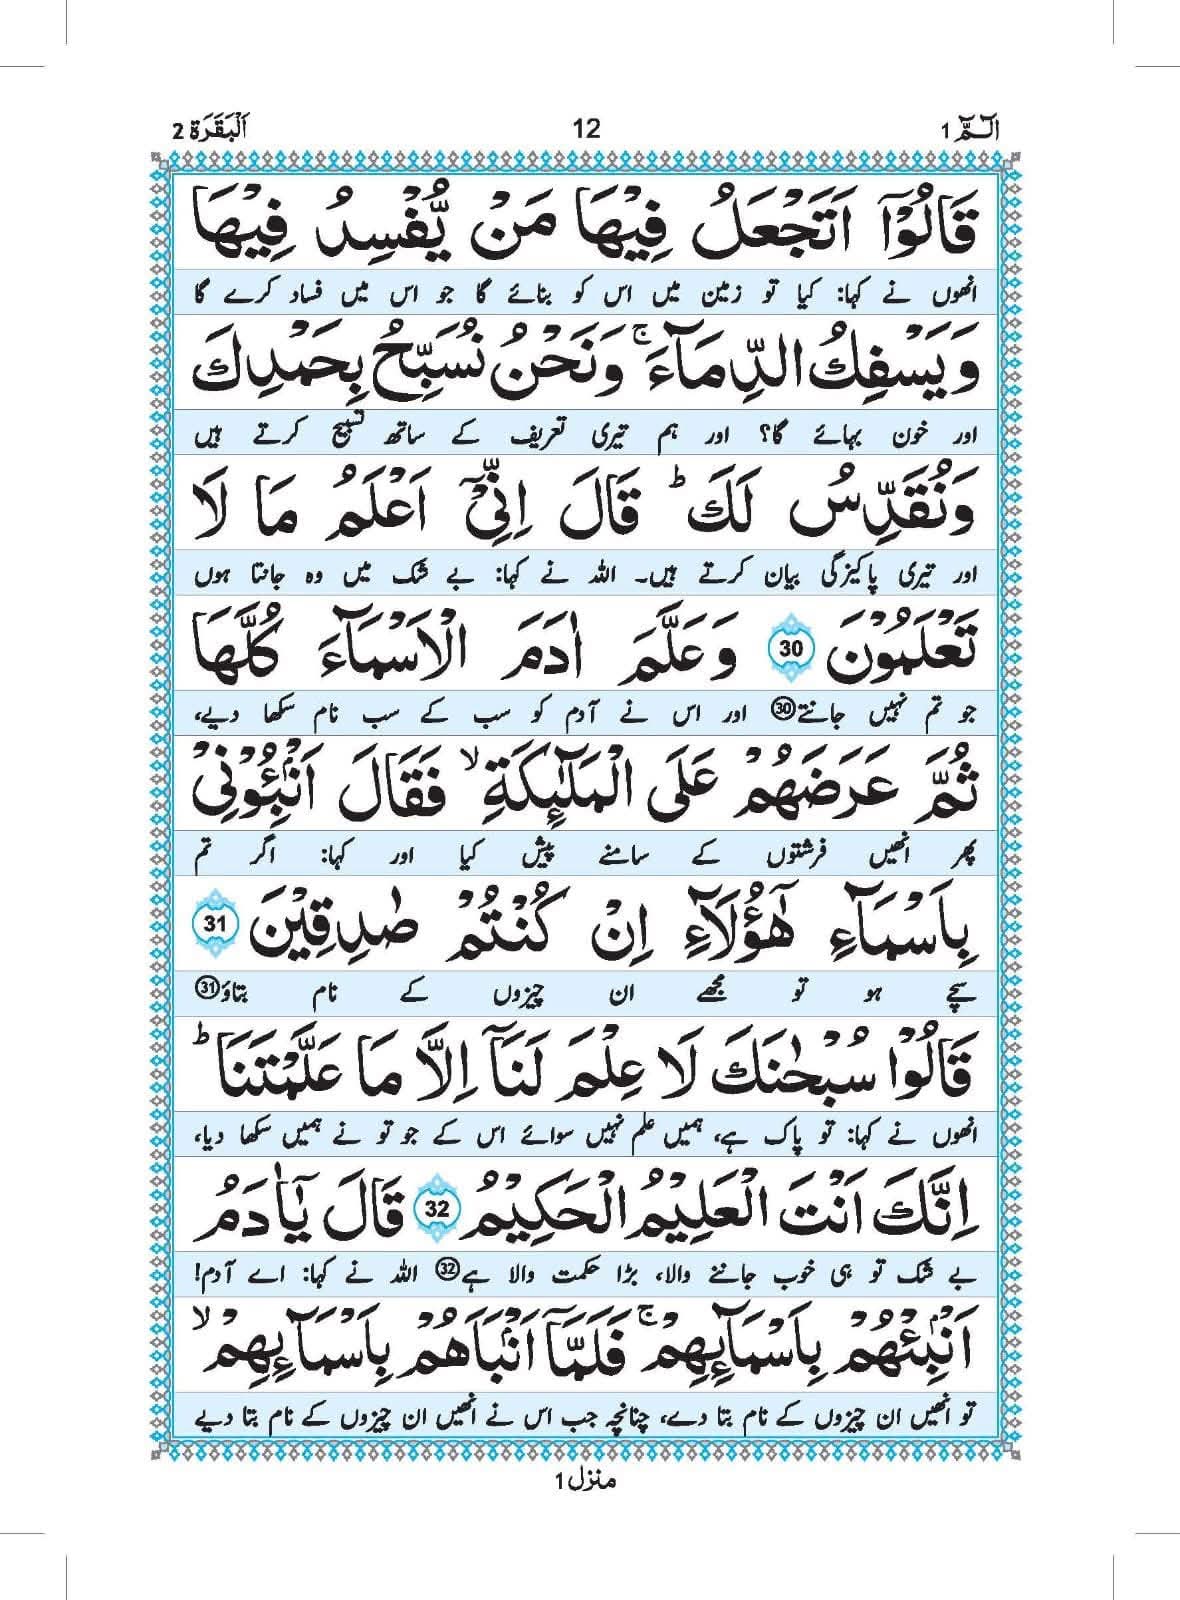 الٓمّٓ 1
12
اَلْبَقَرَة 2
قَالُوْۤا اَتَجْعَلُ فِيْهَا مَنْ يُّفْسِدُ فِيْهَا
انھوں نے کہا: کیا تو زمین میں اس کو بنائے گا جو اس میں فساد کرے گا
وَيَسْفِكُ الدِّمَآءَ ۚ وَنَحْنُ نُسَبِّحُ بِحَمْدِكَ
اور خون بہائے گا؟ اور ہم تیری تعریف کے ساتھ تسبیح کرتے ہیں
وَنُقَدِّسُ لَكَ ؕ قَالَ اِنِّيْۤ اَعْلَمُ مَا لَا
اور تیری پاکیزگی بیان کرتے ہیں۔ اللہ نے کہا: بے شک میں وہ جانتا ہوں
تَعْلَمُوْنَ 30 وَعَلَّمَ اٰدَمَ الْاَسْمَآءَ كُلَّهَا
جو تم نہیں جانتے 30 اور اس نے آدم کو سب کے سب نام سکھا دیے،
ثُمَّ عَرَضَهُمْ عَلَى الْمَلٰٓئِكَةِ ۙ فَقَالَ اَنْۢبِـُٔوْنِيْ
پھر انھیں فرشتوں کے سامنے پیش کیا اور کہا: اگر تم
بِاَسْمَآءِ هٰٓؤُلَآءِ اِنْ كُنْتُمْ صٰدِقِيْنَ 31
سچے ہو تو مجھے ان چیزوں کے نام بتاؤ 31
قَالُوْا سُبْحٰنَكَ لَا عِلْمَ لَنَاۤ اِلَّا مَا عَلَّمْتَنَا ؕ
انھوں نے کہا: تو پاک ہے، ہمیں علم نہیں سوائے اس کے جو تو نے ہمیں سکھا دیا،
اِنَّكَ اَنْتَ الْعَلِيْمُ الْحَكِيْمُ 32 قَالَ يٰۤاٰدَمُ
بے شک تو ہی خوب جاننے والا، بڑا حکمت والا ہے 32 اللہ نے کہا: اے آدم!
اَنْۢبِئْهُمْ بِاَسْمَآئِهِمْ ۚ فَلَمَّاۤ اَنْۢبَاَهُمْ بِاَسْمَآئِهِمْ ۙ
تو انھیں ان چیزوں کے نام بتا دے، چنانچہ جب اس نے انھیں ان چیزوں کے نام بتا دیے
منزل 1